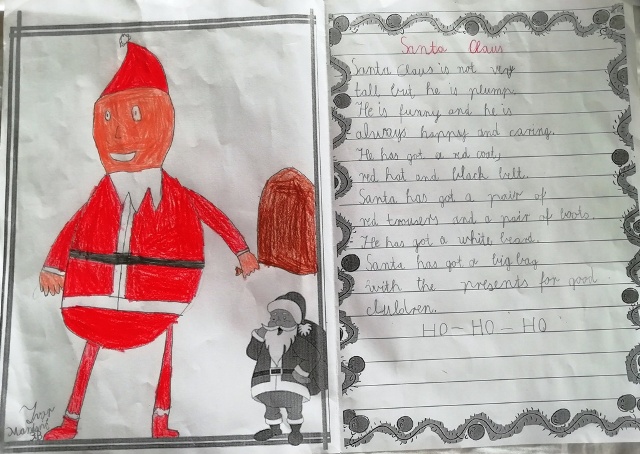 Santa Claus
Santa Claus is not very
tall but he is plump.
He is funny and he is
always happy and caring.
He has got a red coat,
red hat and black belt.
Santa has got a pair of
red trousers and a pair of boots.
He has got a white beard.
Santa has got a big bag
with the presents for good
children.
HO - HO - HO